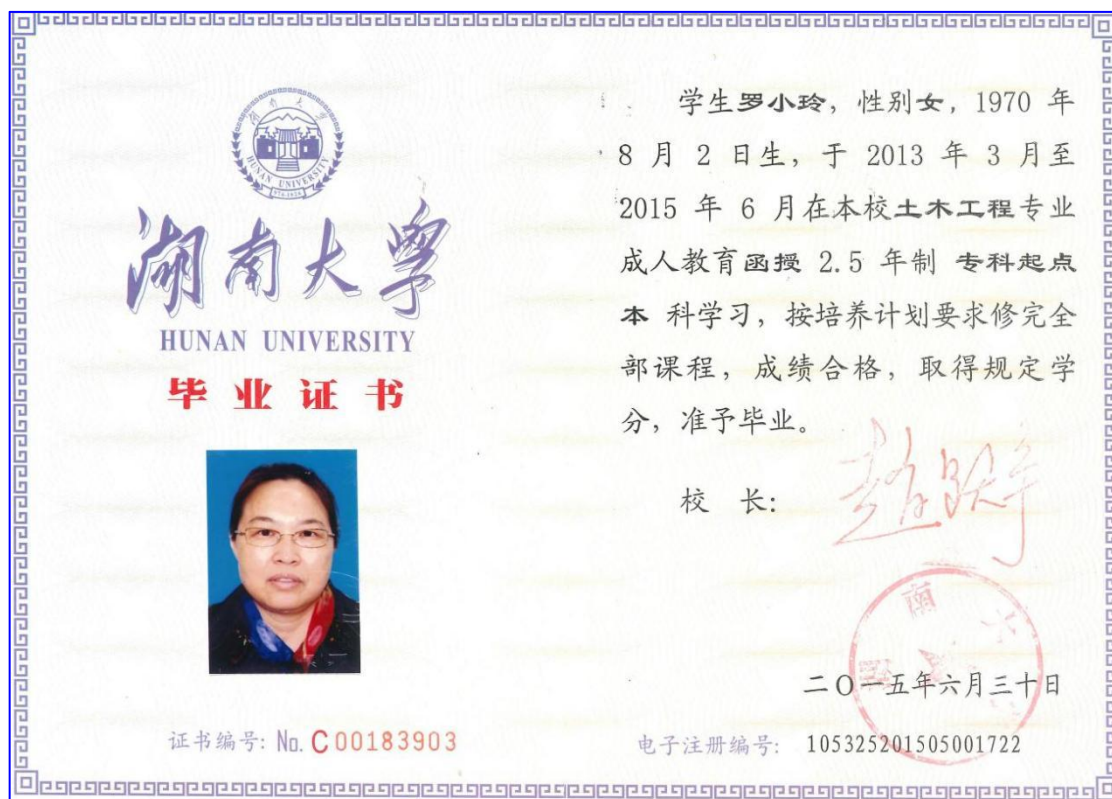 湖南大学
HUNAN UNIVERSITY
湖南大学
HUNAN UNIVERSITY
毕业证书
证书编号: No. C00183903
学生罗小玲，性别女，1970 年
8 月 2 日生，于 2013 年 3 月至
2015 年 6 月在本校土木工程专业
成人教育函授 2.5 年制 专科起点
本 科学习，按培养计划要求修完全
部课程，成绩合格，取得规定学
分，准予毕业。
校 长：
二〇一五年六月三十日
电子注册编号: 105325201505001722